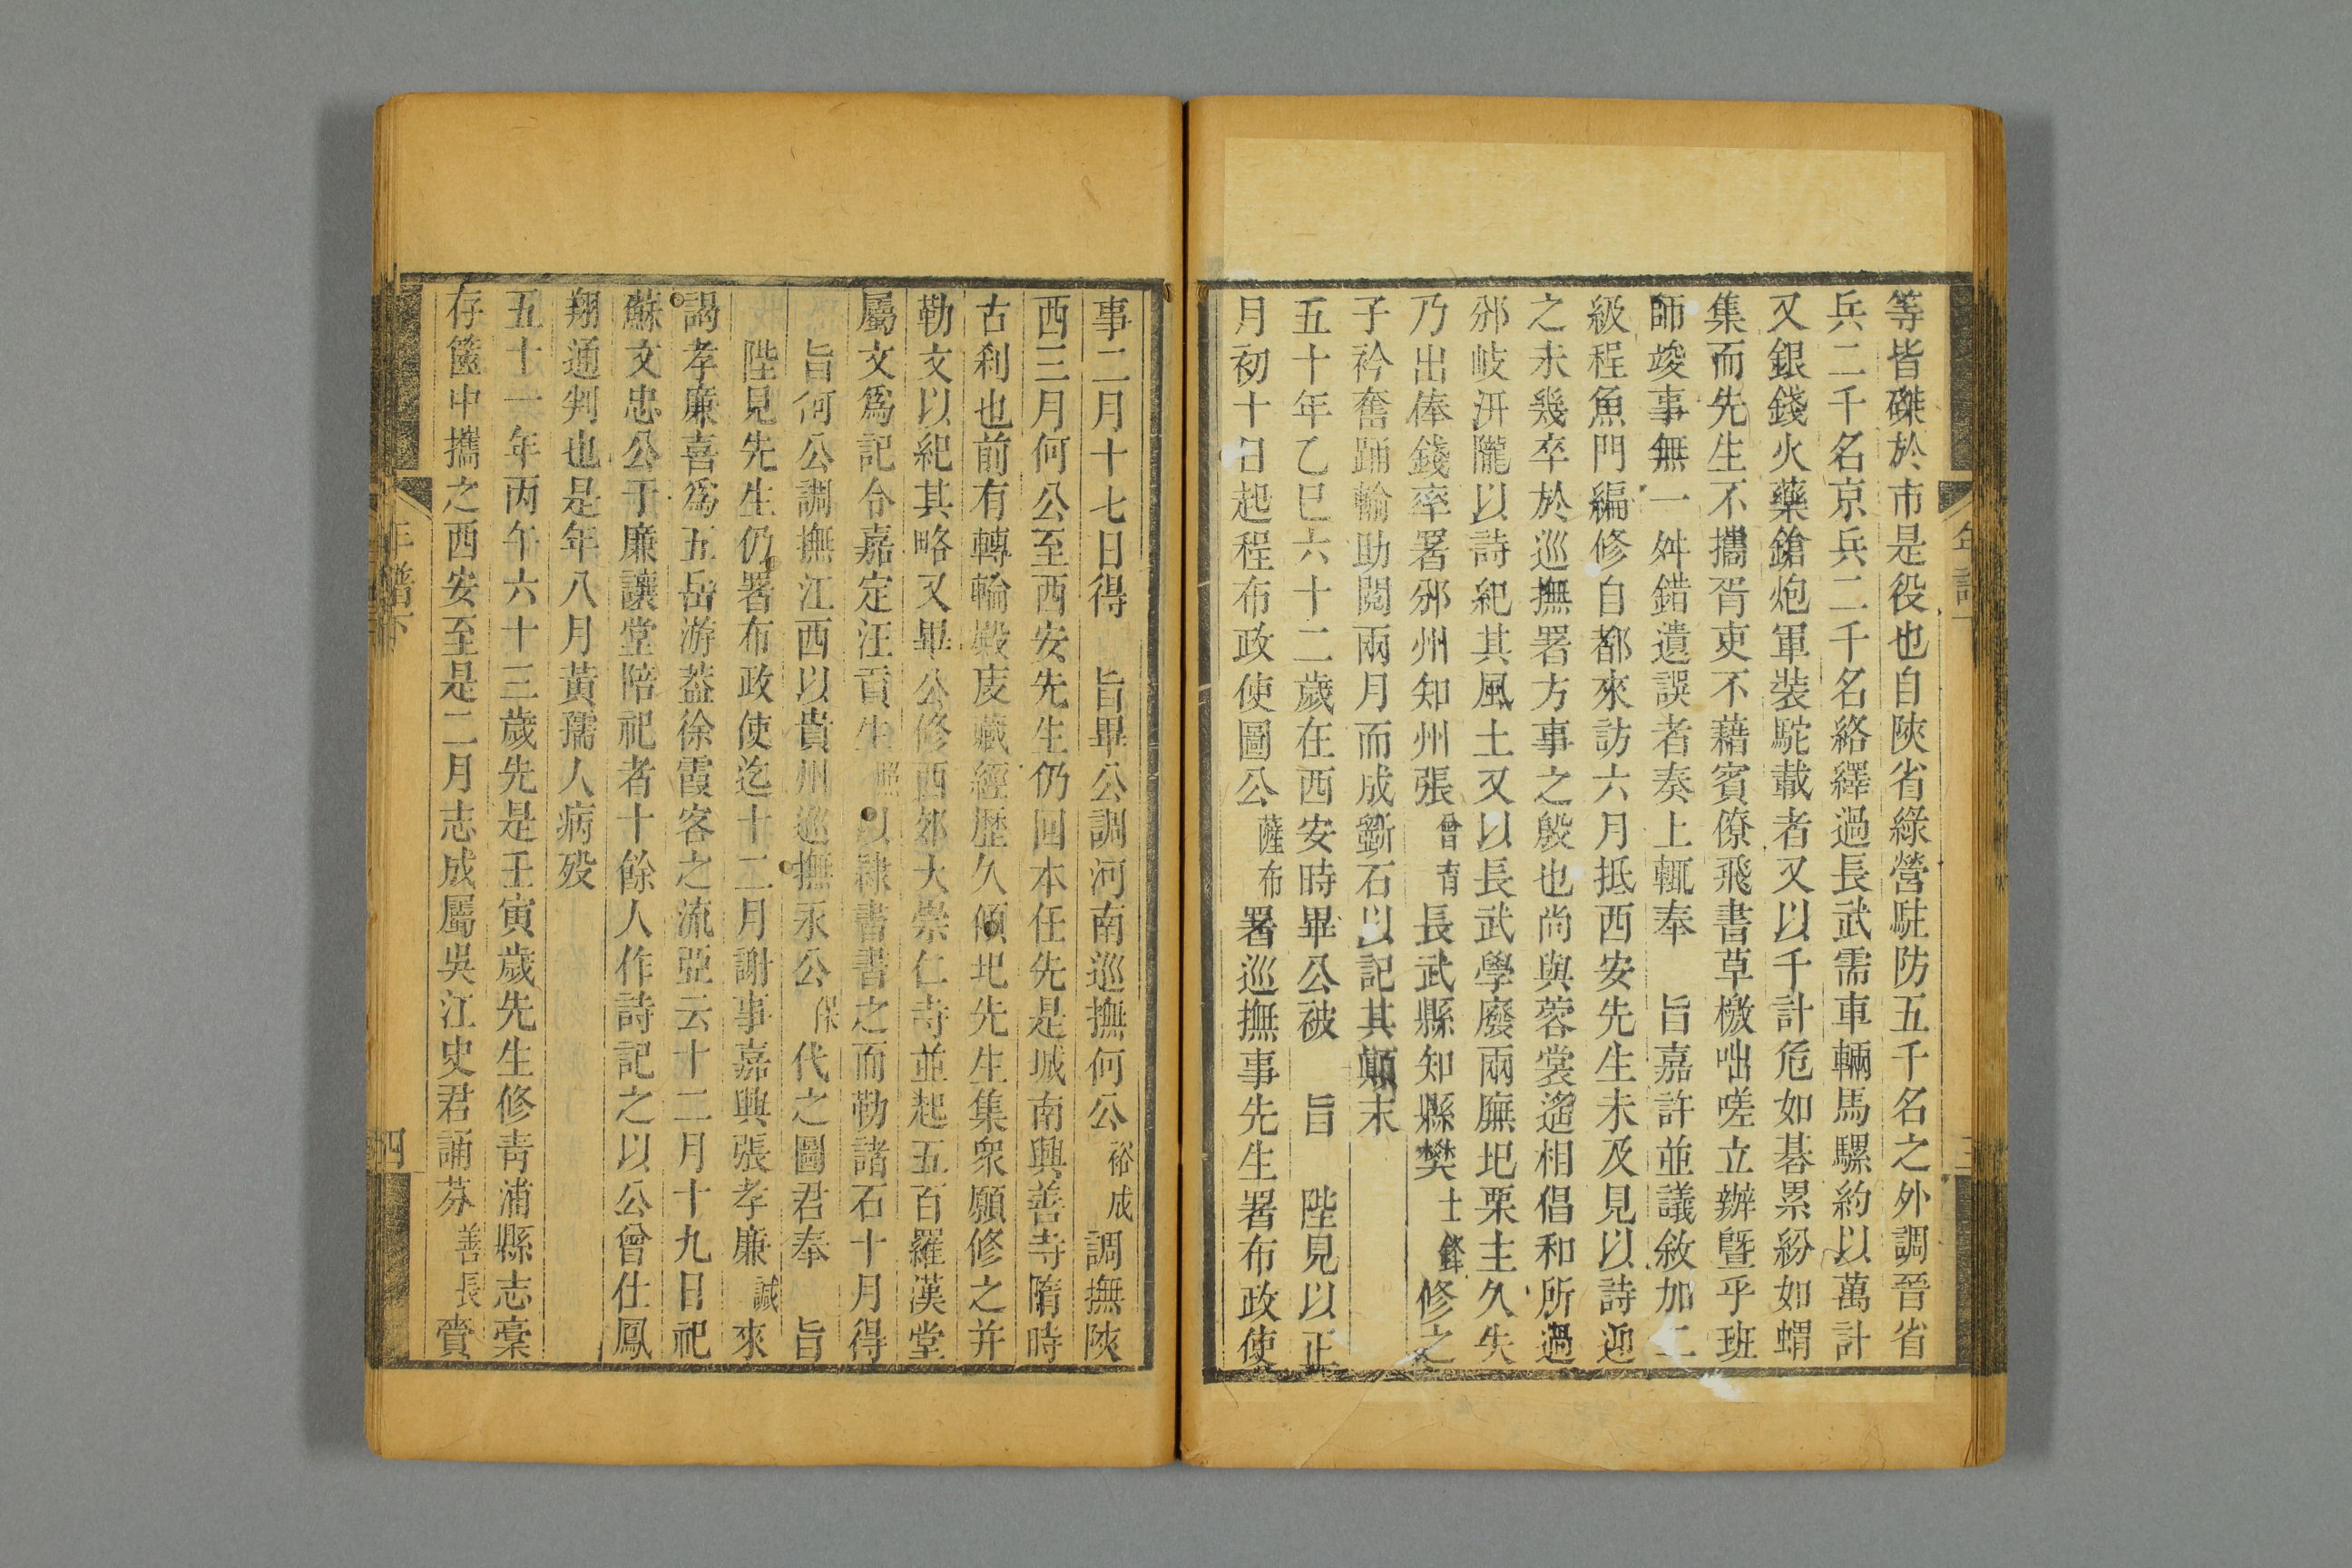 等皆磔於市是役也自陝省綠營駐防五千名之外調晉省
兵二千名京兵二千名絡繹過長武需車輛馬騾約以萬計
又銀錢火藥鎗炮軍裝駝載者又以千計危如碁累紛如蝟
集而先生不攜胥吏不藉賓僚飛書草檄咄嗟立辦曁乎班
師竣事無一舛錯遺誤者奏上輒奉 旨嘉許並議敘加二
級程魚門編修自都來訪六月抵西安先生未及見以詩迎
之未幾卒於巡撫署方事之殷也尚與蓉裳遙相倡和所過
邠岐汧隴以詩紀其風土又以長武學廢兩廡圮栗主久失
乃出俸錢率署邠州知州張曾育長武縣知縣樊士鋒修之
子衿奮踊輸助閱兩月而成斵石以記其顛末
五十年乙巳六十二歲在西安時畢公被 旨 陛見以正
月初十日起程布政使圖公薩布署巡撫事先生署布政使
年譜下
三
事二月十七日得 旨畢公調河南巡撫何公裕成調撫陝
西三月何公至西安先生仍回本任先是城南興善寺隋時
古刹也前有轉輪殿庋藏經歷久傾圮先生集衆願修之并
勒文以紀其略又畢公修西郊大崇仁寺並起五百羅漢堂
屬文爲記令嘉定汪貢生照以隷書書之而勒諸石十月得
旨何公調撫江西以貴州巡撫永公保代之圖君奉 旨
陛見先生仍署布政使迄十二月謝事嘉興張孝廉誠來
謁孝廉喜爲五岳游葢徐霞客之流亞云十二月十九日祀
蘇文忠公于廉讓堂陪祀者十餘人作詩記之以公曾仕鳳
翔通判也是年八月黃孺人病歿
五十一年丙午六十三歲先是壬寅歲先生修靑浦縣志稾
存篋中攜之西安至是二月志成屬吳江史君誦芬善長賫
年譜下
四